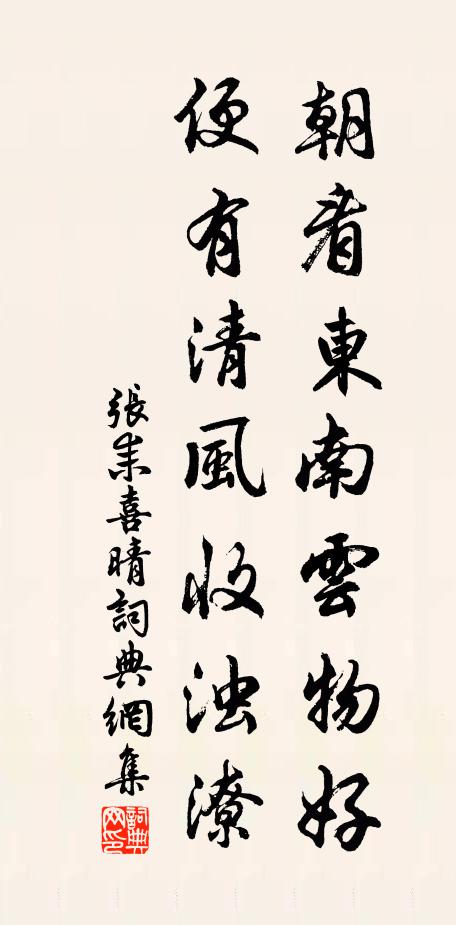 朝看東南雲物好
便有清風收浊潦
張耒喜晴詞典網集
詞典网印